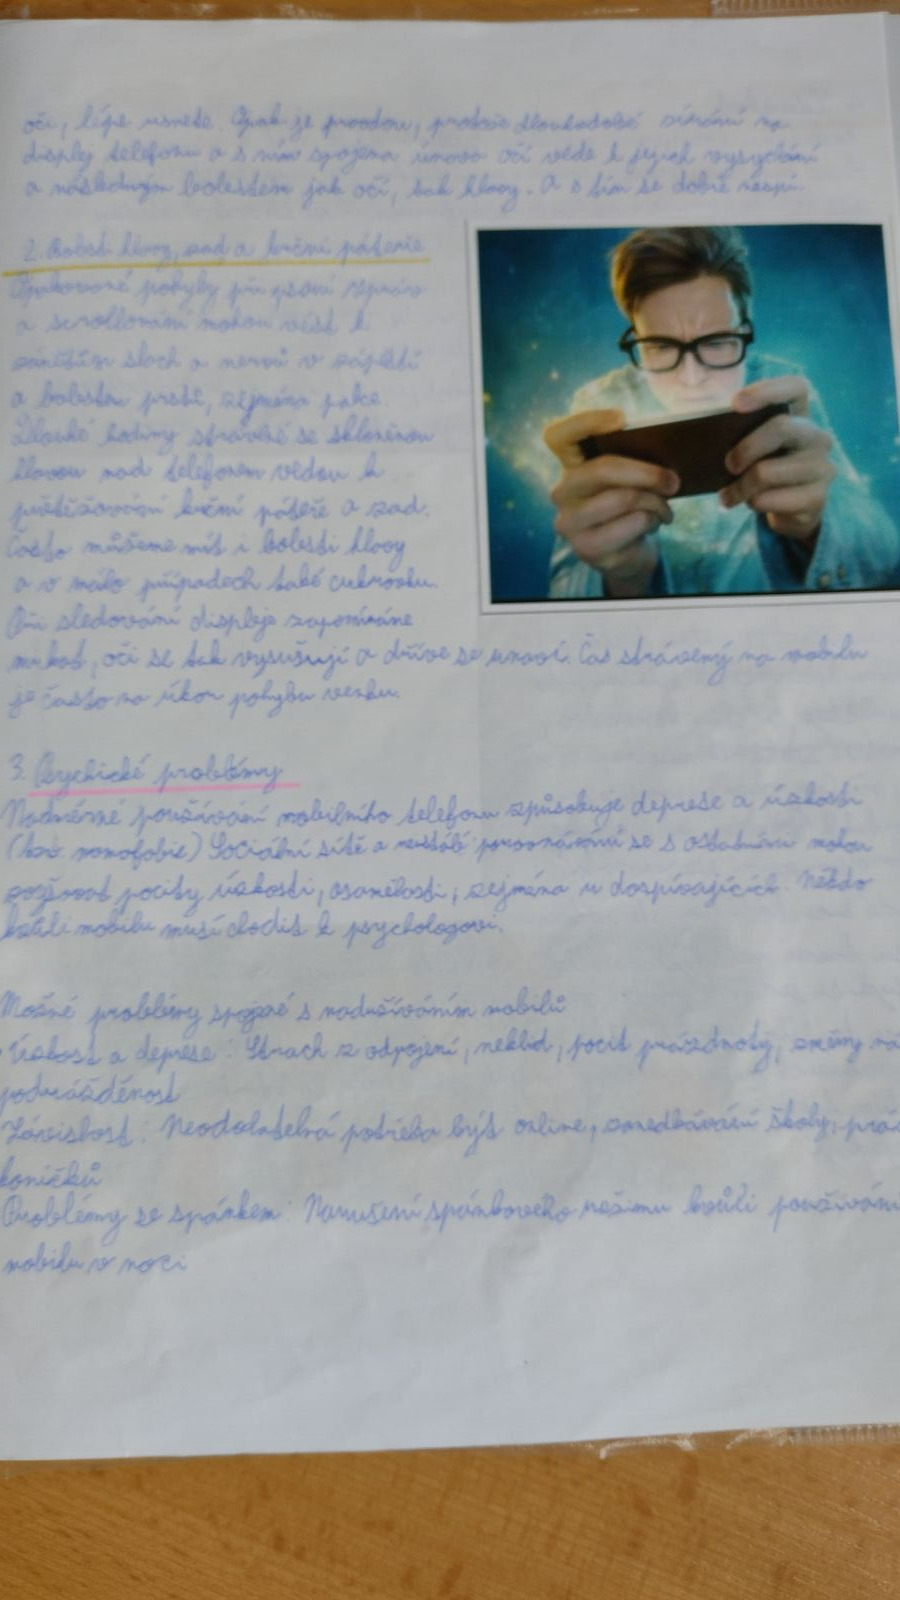 oči, lépe usnete. Opak je pravdou, protože dlouhodobé zírání na
displej telefonu a s ním spojena únava očí vede k jejich vysychání
a následným bolestem jak očí, tak hlavy. A s tím se dobře neusíná
2. Bolesti hlavy, zad a krční páteře
Opakované pohyby při psaní zpráv
a scrollování mohou vést k
zánětům šlach a nervů v zápěstí
a bolestem prstů, zejména palce.
Dlouhé hodiny strávené se skloněnou
hlavou nad telefonem vedou k
přetěžování krční páteře a zad.
Často můžeme mít i bolesti hlavy
a v málo případech také cukrovku.
Při sledování displeje zapomínáme
mrkat, oči se tak vysušují a dříve se unaví. Čas strávený na mobilu
je často na úkor pohybu venku.
3. Psychické problémy
Nadměrné používání mobilního telefonu způsobuje deprese a úzkosti
(tzv. nomofobie) Sociální sítě a neustálé porovnávání se s ostatními mohou
pocity úzkosti, osamělosti, zejména u dospívajících. Někdo
kvůli mobilu musí chodit k psychologovi.
Možné problémy spojené s nadužíváním mobilů
Úzkost a deprese: Strach z odpojení, neklid, pocit prázdnoty, změny
podrážděnost
Závislost: Neodolatelná potřeba být online, zanedbávání školy,
koníčků
Problémy se spánkem: Narušení spánkového režimu kvůli používání
mobilu v noci